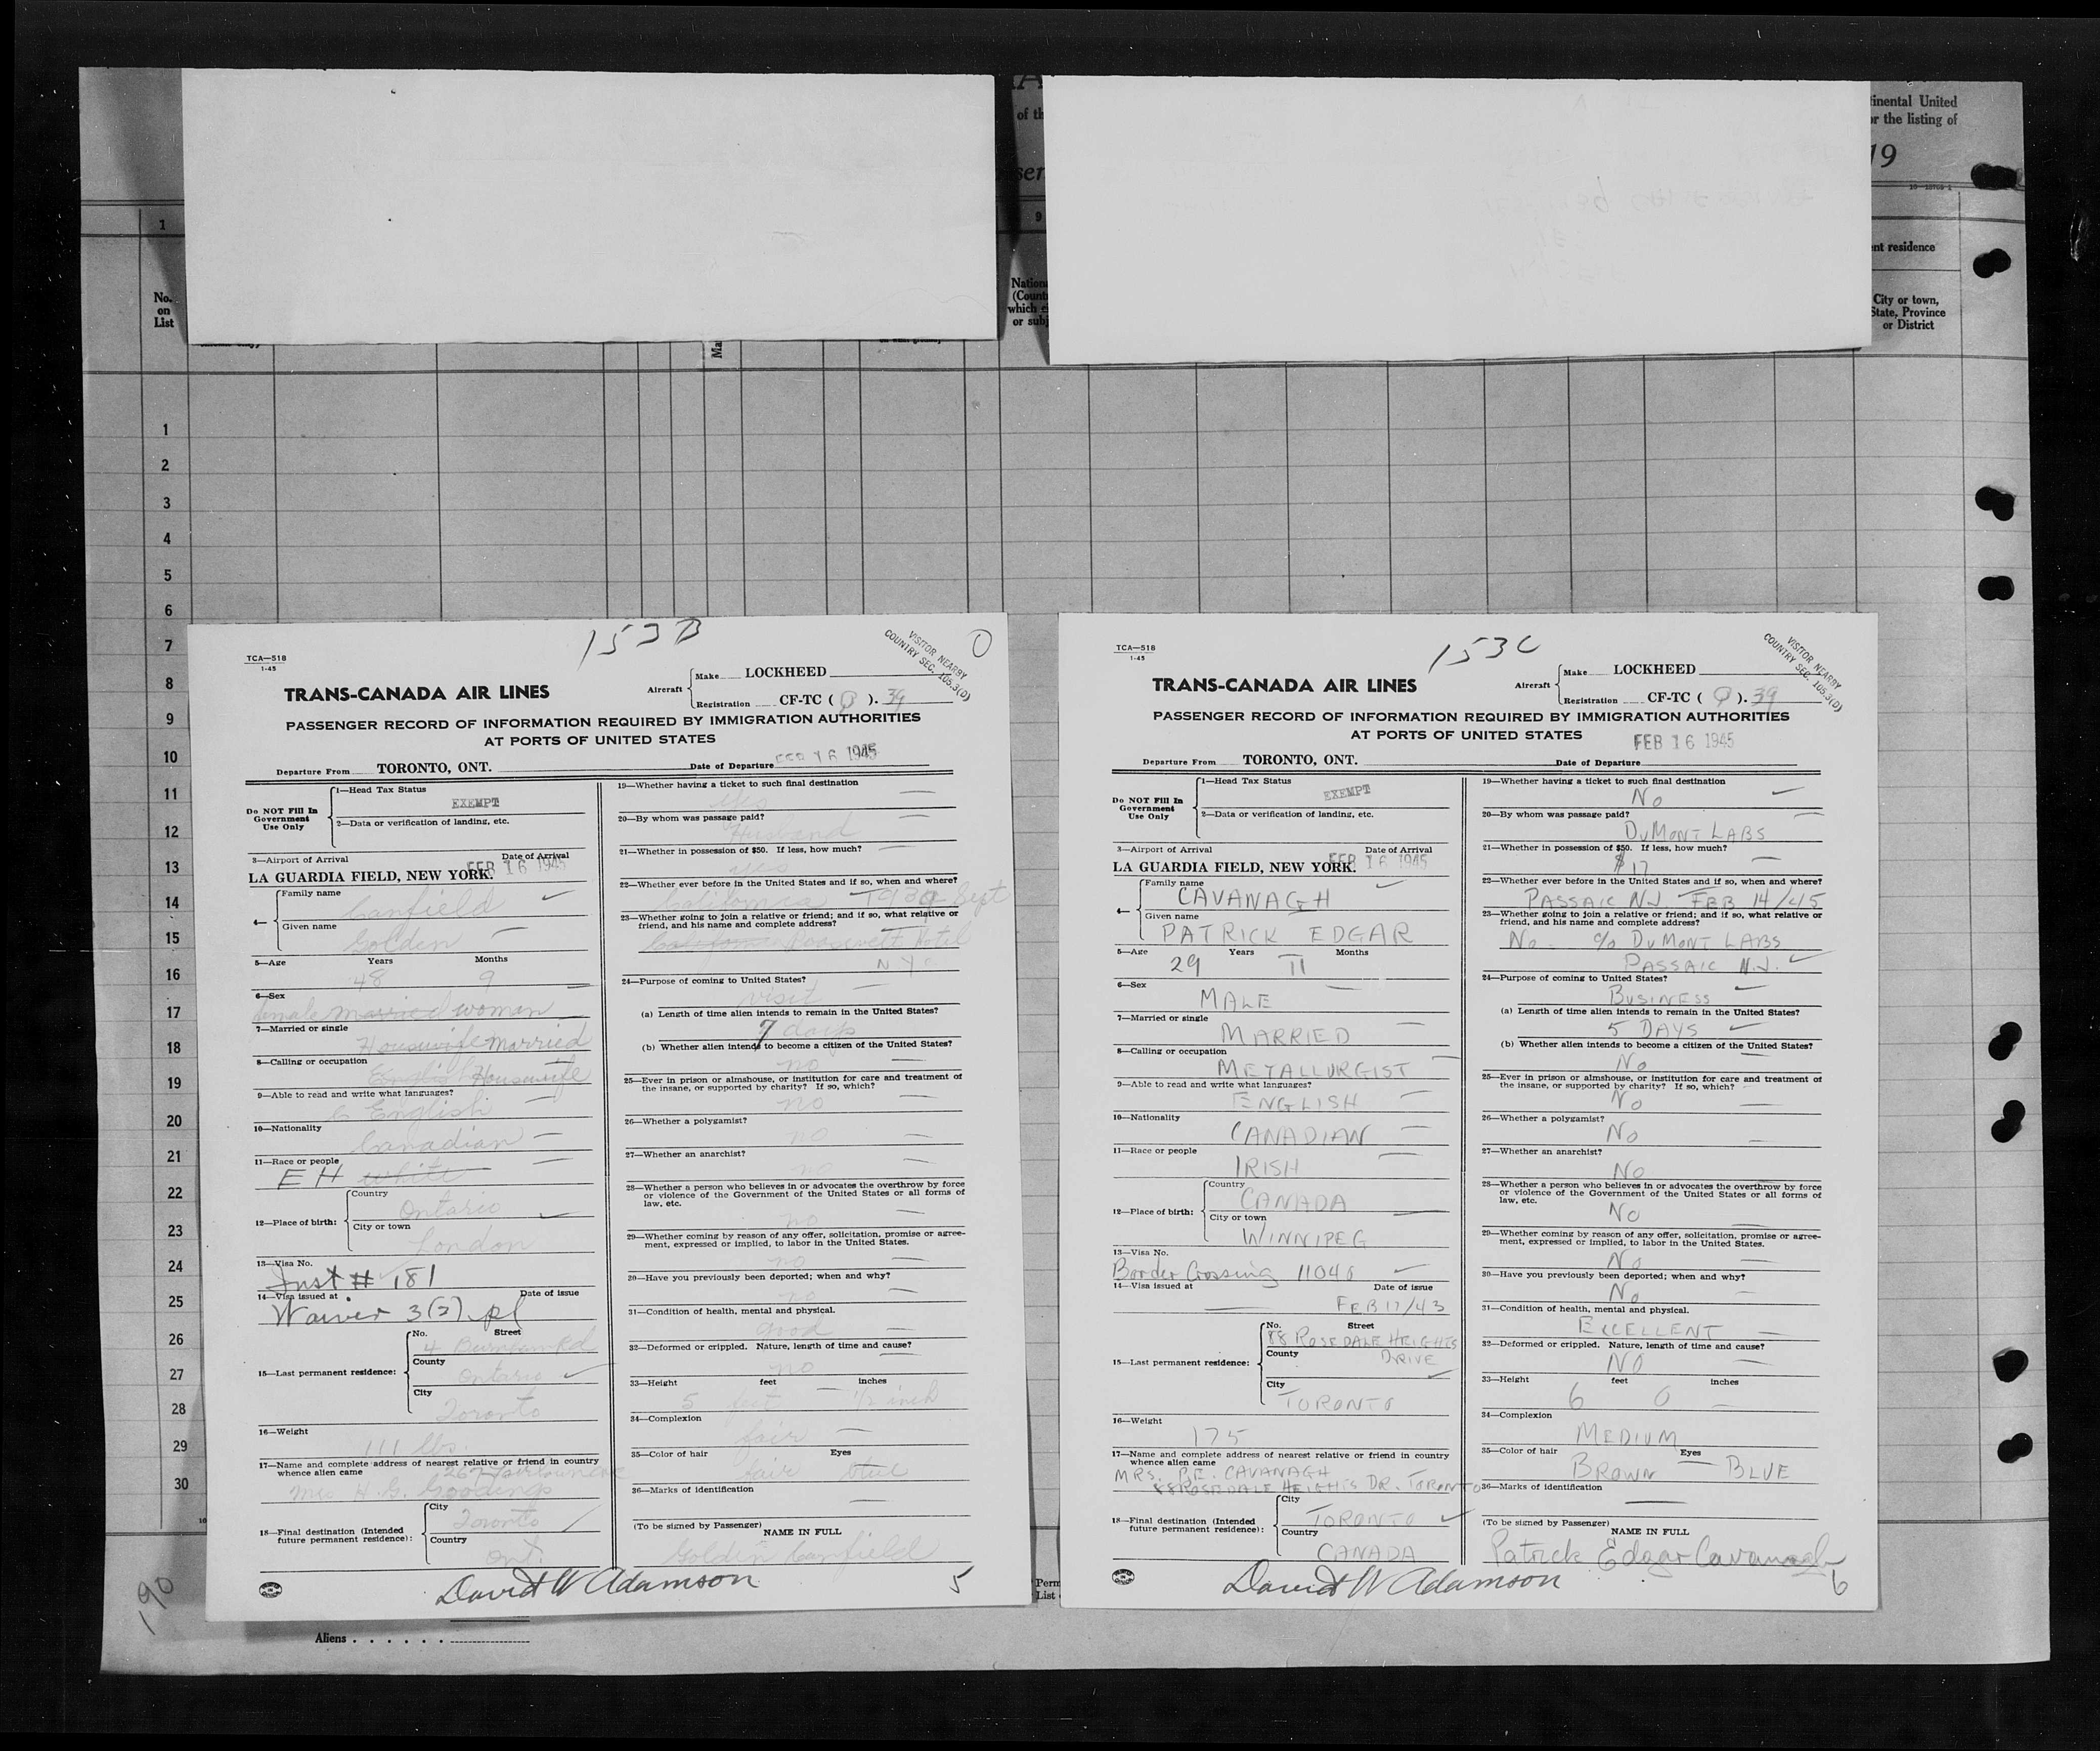 of th
tinental United
or the listing of
19
16—13706-1
1
9
ent residence
No.
on
List
Nation
(Count
which ci
or subj
City or town,
State, Province
or District
Ma
1
2
3
4
5
6
7
8
9
10
11
12
13
14
15
16
17
18
19
20
21
22
23
24
25
26
27
28
29
30
190
Perm
List
Aliens . . . . . .
153B
VISITOR NEARBY
COUNTRY SEC. 105.3(D)
TCA—518
1-45
TRANS-CANADA AIR LINES
Aircraft
Make LOCKHEED
Registration CF-TC ( Q ). 39
PASSENGER RECORD OF INFORMATION REQUIRED BY IMMIGRATION AUTHORITIES
AT PORTS OF UNITED STATES
Departure From TORONTO, ONT. Date of Departure FEB 16 1945
Do NOT Fill In
Government
Use Only
1—Head Tax Status
EXEMPT
2—Data or verification of landing, etc.
3—Airport of Arrival Date of Arrival
LA GUARDIA FIELD, NEW YORK. FEB 16 1945
4— Family name
Canfield
Given name
Golden
5—Age Years Months
48 9
6—Sex
female married woman
7—Married or single
Housewife married
8—Calling or occupation
English Housewife
9—Able to read and write what languages?
English
10—Nationality
Canadian
11—Race or people
E H white
12—Place of birth:
Country
Ontario
City or town
London
13—Visa No.
Inst # 181
14—Visa issued at Date of issue
Waiver 3(2).pl
15—Last permanent residence:
No. Street
4 Burnham Rd
County
Ontario
City
Toronto
16—Weight
111 lbs.
17—Name and complete address of nearest relative or friend in country
whence alien came
Mrs H. G. Goodings
18—Final destination (Intended
future permanent residence):
City
Toronto
Country
Ont.
19—Whether having a ticket to such final destination
yes
20—By whom was passage paid?
Husband
21—Whether in possession of $50. If less, how much?
yes
22—Whether ever before in the United States and if so, when and where?
California 1939 Sept
23—Whether going to join a relative or friend; and if so, what relative or
friend, and his name and complete address?
Roosevelt Hotel
N Y C
24—Purpose of coming to United States?
visit
(a) Length of time alien intends to remain in the United States?
7 days
(b) Whether alien intends to become a citizen of the United States?
no
25—Ever in prison or almshouse, or institution for care and treatment of
the insane, or supported by charity? If so, which?
no
26—Whether a polygamist?
no
27—Whether an anarchist?
no
28—Whether a person who believes in or advocates the overthrow by force
or violence of the Government of the United States or all forms of
law, etc.
no
29—Whether coming by reason of any offer, solicitation, promise or agree-
ment, expressed or implied, to labor in the United States.
no
30—Have you previously been deported; when and why?
no
31—Condition of health, mental and physical.
good
32—Deformed or crippled. Nature, length of time and cause?
no
33—Height feet inches
5 feet — 1/2 inch
34—Complexion
fair
35—Color of hair Eyes
fair blue
36—Marks of identification
(To be signed by Passenger)
NAME IN FULL
Golden Canfield
David W Adamson
5
153C
VISITOR NEARBY
COUNTRY SEC. 105.3(D)
TCA—518
1-45
TRANS-CANADA AIR LINES
Aircraft
Make LOCKHEED
Registration CF-TC ( Q ). 39
PASSENGER RECORD OF INFORMATION REQUIRED BY IMMIGRATION AUTHORITIES
AT PORTS OF UNITED STATES
FEB 16 1945
Departure From TORONTO, ONT. Date of Departure
Do NOT Fill In
Government
Use Only
1—Head Tax Status
EXEMPT
2—Data or verification of landing, etc.
3—Airport of Arrival Date of Arrival
LA GUARDIA FIELD, NEW YORK. FEB 16 1945
4— Family name
CAVANAGH
Given name
PATRICK EDGAR
5—Age Years Months
29 11
6—Sex
MALE
7—Married or single
MARRIED
8—Calling or occupation
METALLURGIST
9—Able to read and write what languages?
ENGLISH
10—Nationality
CANADIAN
11—Race or people
IRISH
12—Place of birth:
Country
CANADA
City or town
WINNIPEG
13—Visa No.
Border Crossing 11046
14—Visa issued at Date of issue
FEB 17/43
15—Last permanent residence:
No. Street
88 ROSEDALE HEIGHTS
County DRIVE
City
TORONTO
16—Weight
175
17—Name and complete address of nearest relative or friend in country
whence alien came
MRS. P.E. CAVANAGH
88 ROSEDALE HEIGHTS DR. TORONTO
18—Final destination (Intended
future permanent residence):
City
TORONTO
Country
CANADA
19—Whether having a ticket to such final destination
NO
20—By whom was passage paid?
DUMONT LABS
21—Whether in possession of $50. If less, how much?
$17
22—Whether ever before in the United States and if so, when and where?
PASSAIC N.J. FEB 14/45
23—Whether going to join a relative or friend; and if so, what relative or
friend, and his name and complete address?
No. c/o DUMONT LABS
PASSAIC N.J.
24—Purpose of coming to United States?
BUSINESS
(a) Length of time alien intends to remain in the United States?
5 DAYS
(b) Whether alien intends to become a citizen of the United States?
No
25—Ever in prison or almshouse, or institution for care and treatment of
the insane, or supported by charity? If so, which?
No
26—Whether a polygamist?
No
27—Whether an anarchist?
No
28—Whether a person who believes in or advocates the overthrow by force
or violence of the Government of the United States or all forms of
law, etc.
No
29—Whether coming by reason of any offer, solicitation, promise or agree-
ment, expressed or implied, to labor in the United States.
No
30—Have you previously been deported; when and why?
No
31—Condition of health, mental and physical.
EXCELLENT
32—Deformed or crippled. Nature, length of time and cause?
NO
33—Height feet inches
6 0
34—Complexion
MEDIUM
35—Color of hair Eyes
BROWN — BLUE
36—Marks of identification
(To be signed by Passenger)
NAME IN FULL
Patrick Edgar Cavanagh
David W Adamson
6